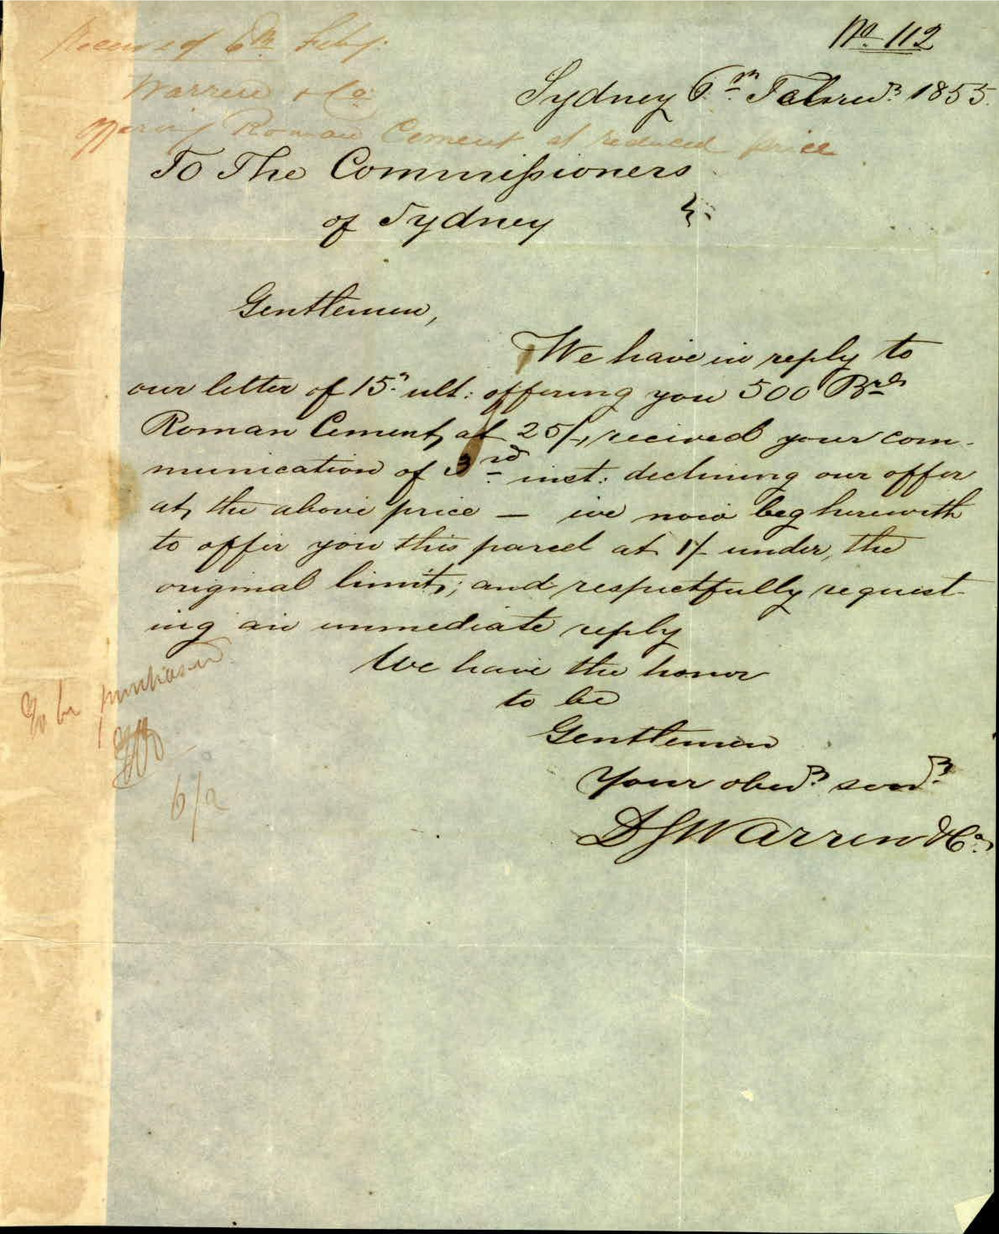 No. 112
Received 6th Feby.
Warren & Co.
offering Roman Cement at reduced price
Sydney 6th Febru. 1855.
To The Commissioners
of Sydney
Gentlemen,
We have in reply to
our letter of 15th ult: offering you 500 Brls
Roman Cement, at 25/-, recieved your com-
munication of 3rd inst: declining our offer
at the above price — we now beg herewith
to offer you this parcel at 1/- under, the
original limit; and respectfully request-
ing an immediate reply
We have the honor
to be
Gentlemen
Your obedt. servt.
D S Warren & Co.
To be purchased
6/2